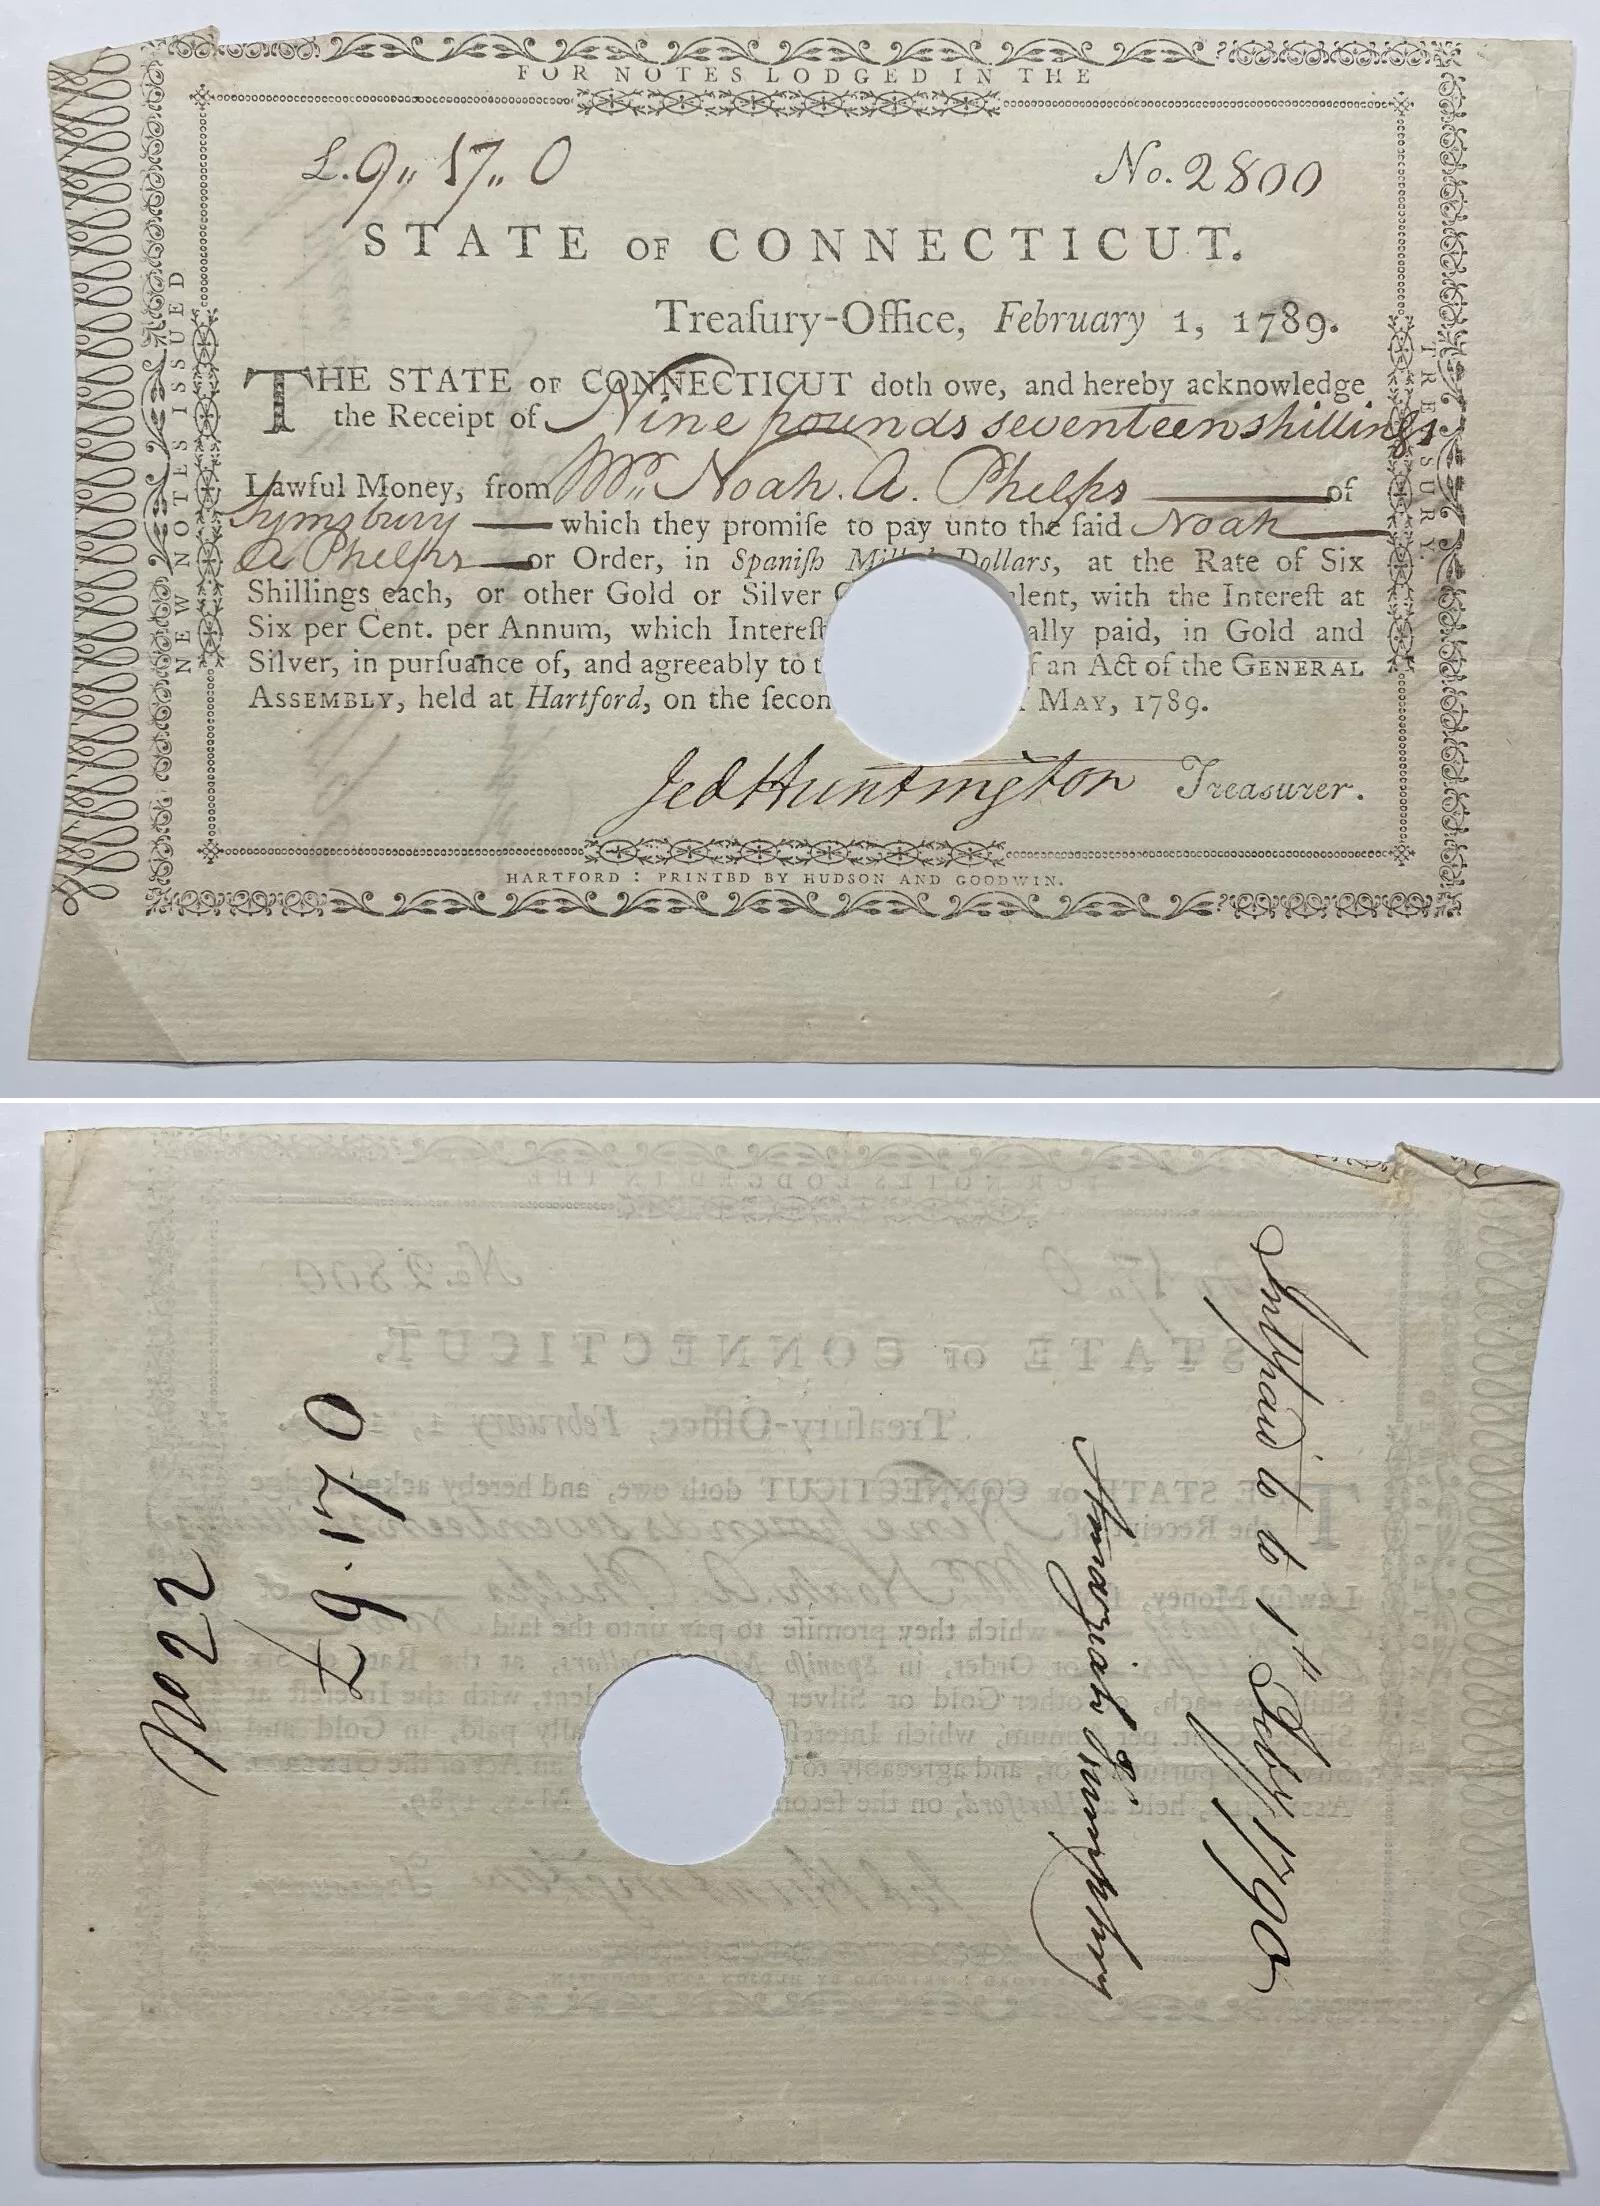 FOR NOTES LODGED IN THE
NEW NOTES ISSUED
TREASURY.
£. 9,, 17,, 0
No. 2800
STATE OF CONNECTICUT.
Treaſury-Office, February 1, 1789.
THE STATE OF CONNECTICUT doth owe, and hereby acknowledge
the Receipt of Nine pounds seventeen shillings
Lawful Money, from Mr,, Noah. A. Phelps of
Symsbury which they promiſe to pay unto the ſaid Noah
A Phelps or Order, in Spaniſh Dollars, at the Rate of Six
Shillings each, or other Gold or Silver lent, with the Intereſt at
Six per Cent. per Annum, which Intereſt ally paid, in Gold and
Silver, in purſuance of, and agreeably to t f an Act of the GENERAL
ASSEMBLY, held at Hartford, on the ſecon MAY, 1789.
Jed Huntington Treasurer.
HARTFORD: PRINTED BY HUDSON AND GOODWIN.
Intt paid to to 1st Feby 1790
Amaziah Humphry
£9.17.0
No 22